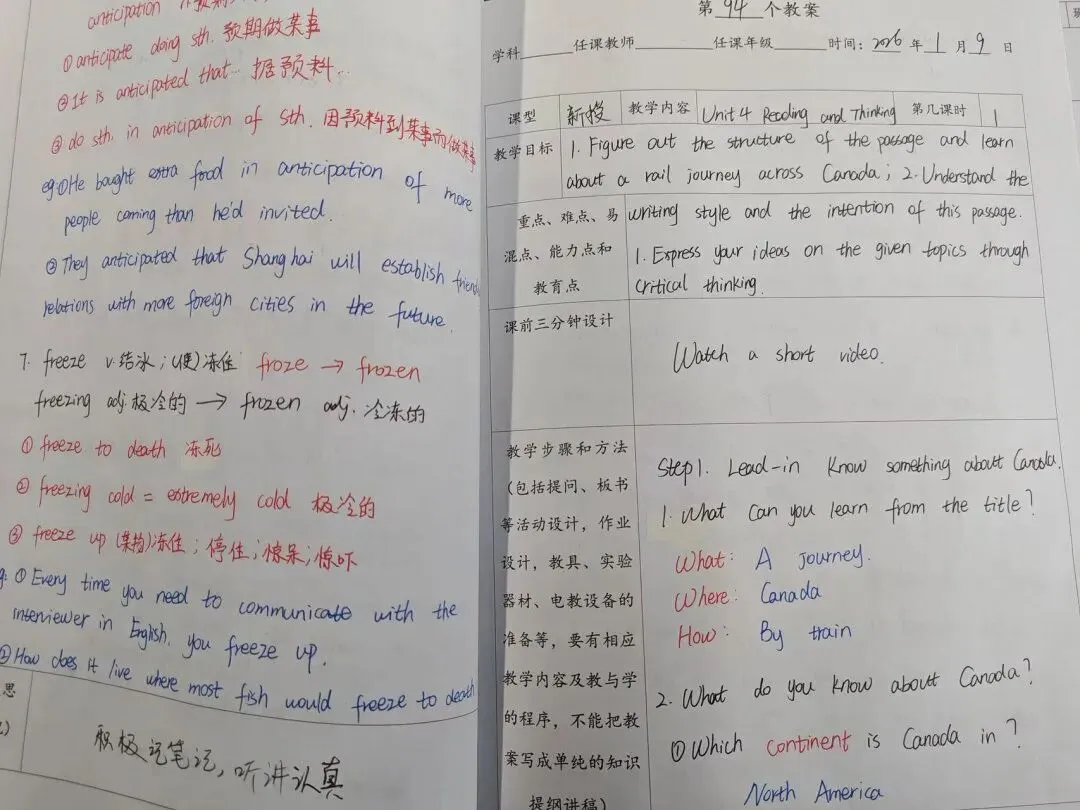 anticipation n.预期
① anticipate doing sth. 预期做某事
② It is anticipated that… 据预料…
③ do sth. in anticipation of sth. 因预料到某事而做某事
eg:①He bought extra food in anticipation of more
people coming than he'd invited.
②They anticipated that Shanghai will establish friend
relations with more foreign cities in the future.
7. freeze v.结冰;(使)冻住 froze → frozen
freezing adj.极冷的 → frozen adj. 冷冻的
① freeze to death 冻死
② freezing cold = extremely cold 极冷的
③ freeze up (某物)冻住;停住;惊呆;惊吓
g: ① Every time you need to communicate with the
interviewer in English, you freeze up.
② How does it live where most fish would freeze to death
思
积极记笔记,听讲认真
第 94 个教案
学科 任课教师 任课年级 时间: 2026 年 1 月 9 日
课型 新授 教学内容 Unit 4 Reading and Thinking 第几课时 1
教学目标 1. Figure out the structure of the passage and learn
about a rail journey across Canada; 2. Understand the
重点、难点、易 writing style and the intention of this passage.
混点、能力点和 1. Express your ideas on the given topics through
教育点 critical thinking.
课前三分钟设计
Watch a short video.
教学步骤和方法 Step 1. Lead-in Know something about Canada.
(包括提问、板书 1. What can you learn from the title?
等活动设计,作业
设计,教具、实验 What: A journey.
器材、电教设备的 Where: Canada
准备等,要有相应 How: By train
教学内容及教与学 2. What do you know about Canada?
的程序,不能把教
案写成单纯的知识 ① Which continent is Canada in?
提纲讲稿) North America